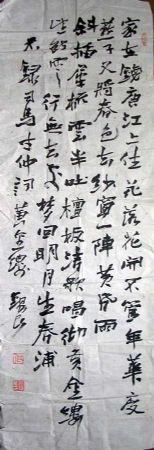 家在錢唐江上住花落花開不管年華度
燕子又將春色去紗窗一陣黃昏雨
斜插犀梳雲半吐檀板清歌唱彻黃金縷
望斷雲行無去處夢回明月生春浦
右錄司馬才仲詞黃金縷